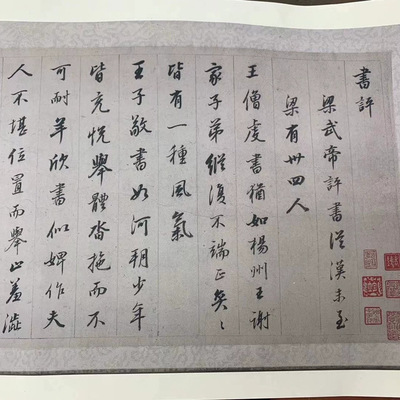 書評
梁武帝評書從漢末至
梁有卅四人
王僧虔書猶如楊州王謝
家子弟縱復不端正奕〻
皆有一種風氣
王子敬書如河朔少年
皆充悦舉體沓拖而不
可耐羊欣書似婢作夫
人不堪位置而舉止羞澁